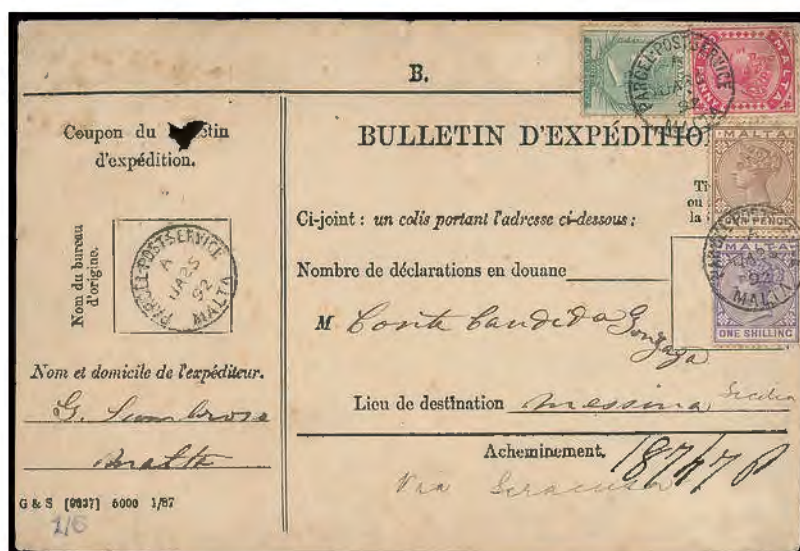 B.
Coupon du
d'expédition.
Nom du bureau
d'origine.
PARCEL-POST-SERVICE
A
JA 25
92
MALTA
Nom et domicile de l'expéditeur.
G.
Malta
G & S [9937] 5000 1/87
1/6
BULLETIN D'EXPÉDITIO
Ti
ou
la
Ci-joint : un colis portant l'adresse ci-dessous :
Nombre de déclarations en douane
M Conte Candida Gonzaga
Lieu de destination Messina Sicilia
Acheminement.
Via Siracusa
PARCEL-POST-SERVICE
A
JA
92
MALTA
MALTA
PENNY
MALTA
PENCE
PARCEL-POST
A
JA 25
92
MALTA
MALTA
ONE SHILLING